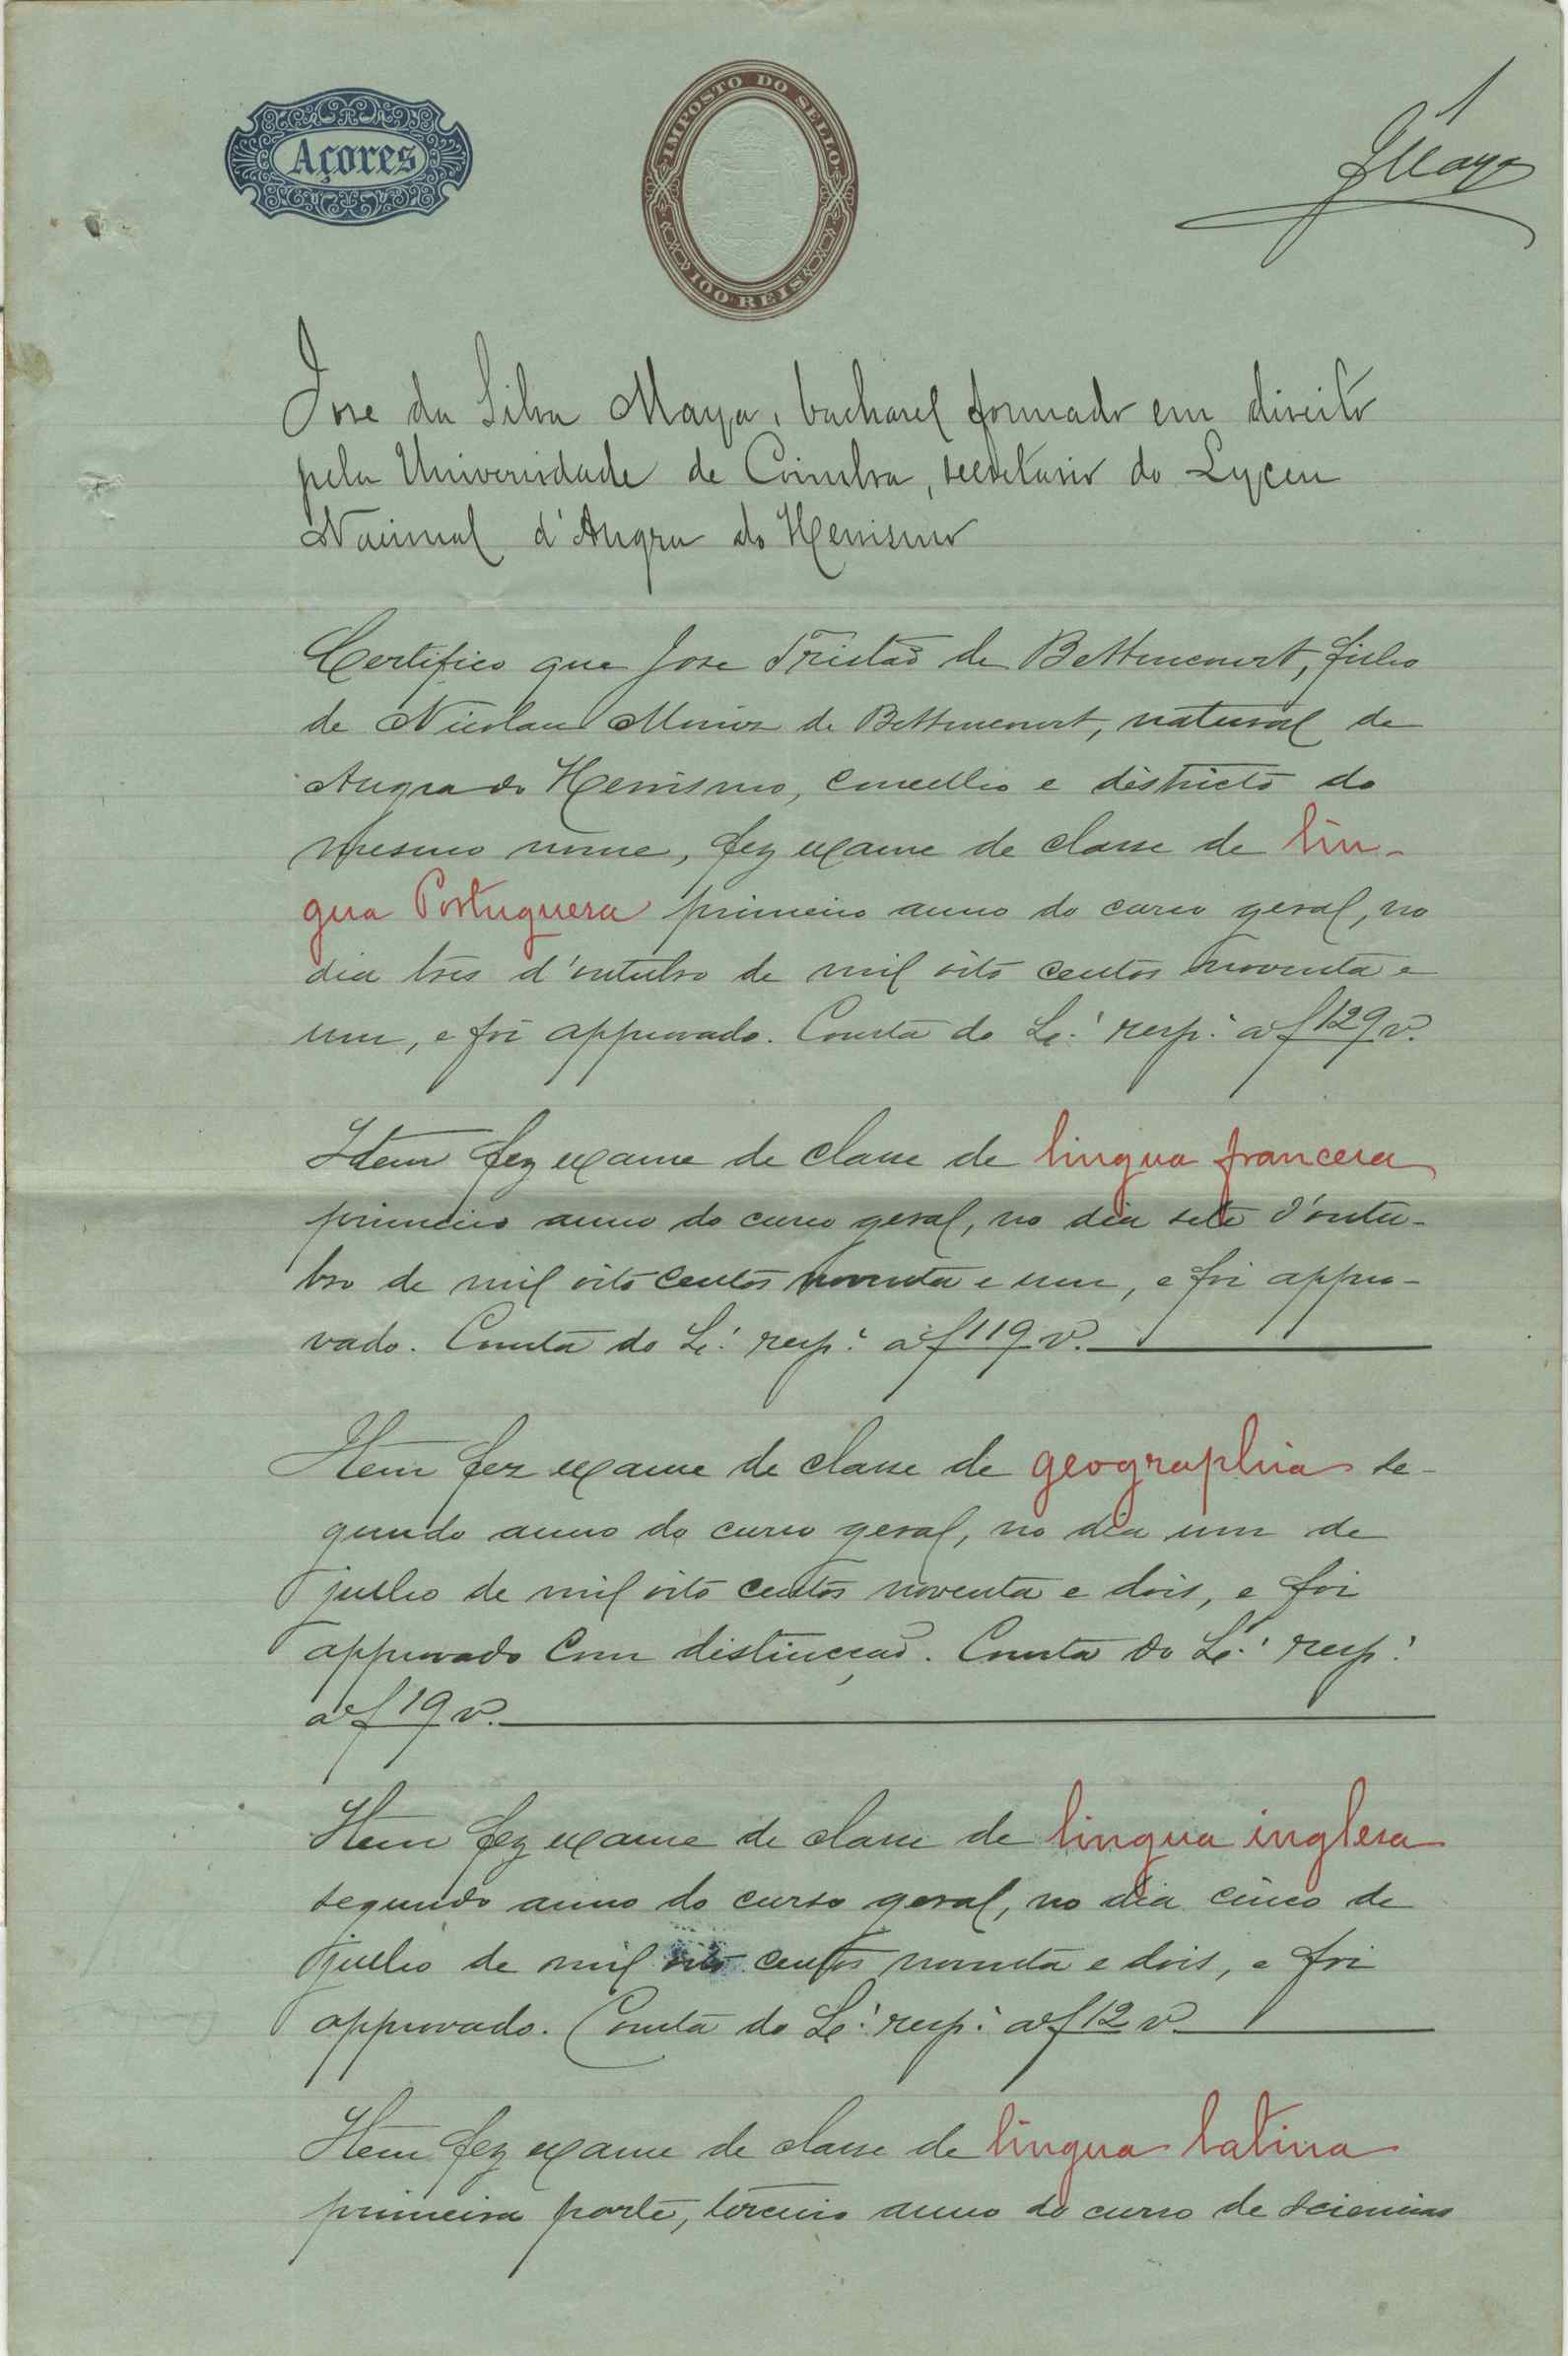 Açores
IMPOSTO DO SELLO
100 REIS
1
JMaya
José da Silva Maya, bacharel formado em direito
pela Universidade de Coimbra, secretario do Lyceu
Nacional d'Angra do Heroismo
Certifico que José Tristão de Bettencourt, filho
de Nicolau Moniz de Bettencourt, natural de
Angra do Heroismo, concelho e districto do
mesmo nome, fez exame de classe de lin-
gua Portugueza primeiro anno do curso geral, no
dia tres d'outubro de mil oito centos noventa e
um, e foi approvado. Consta do Lº. respº. a f 129 v.
Item fez exame de classe de lingua franceza
primeiro anno do curso geral, no dia sete d'outu-
bro de mil oito centos noventa e um, e foi appro-
vado. Consta do Lº. respº. a f 119 v.
Item fez exame de classe de geographia se-
gundo anno do curso geral, no dia um de
julho de mil oito centos noventa e dois, e foi
approvado com distincção. Consta do Lº. respº.
a f 19 v.
Item fez exame de classe de lingua inglesa
segundo anno do curso geral, no dia cinco de
julho de mil oito centos noventa e dois, e foi
approvado. Consta do Lº. respº. a f 12 v.
Item fez exame de classe de lingua latina
primeira parte, terceiro anno do curso de sciencias